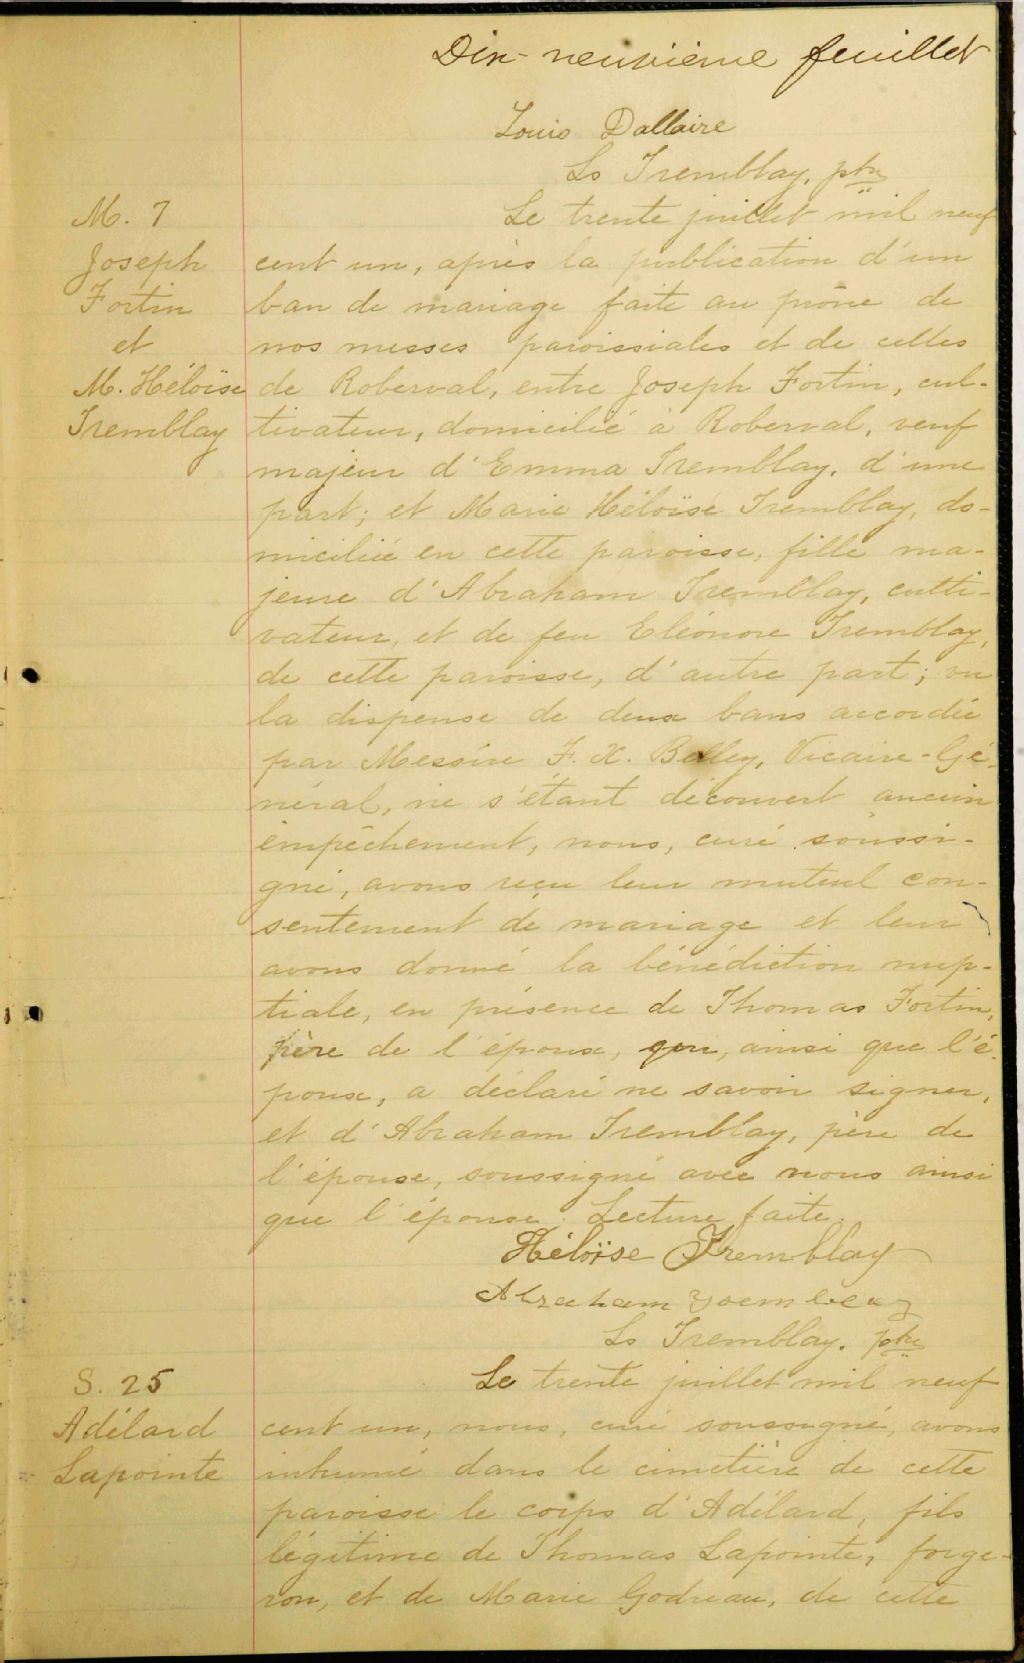 Dix-neuvième feuillet
Louis Dallaire
Ls Tremblay, ptre
M. 7
Joseph
Fortin
et
M. Héloïse
Tremblay
Le trente juillet mil neuf
cent un, après la publication d'un
ban de mariage faite au prône de
nos messes paroissiales et de celles
de Roberval, entre Joseph Fortin, cul-
tivateur, domicilié à Roberval, veuf
majeur d'Emma Tremblay, d'une
part; et Marie Héloïse Tremblay, do-
miciliée en cette paroisse, fille ma-
jeure d'Abraham Tremblay, culti-
vateur, et de feu Eléonore Tremblay,
de cette paroisse, d'autre part; vu
la dispense de deux bans accordée
par Messire F. X. Belley, Vicaire-Gé-
néral, ne s'étant découvert aucun
empêchement, nous, curé soussi-
gné, avons reçu leur mutuel con-
sentement de mariage et leur
avons donné la bénédiction nup-
tiale, en présence de Thomas Fortin,
père de l'époux, qui, ainsi que l'é-
poux, a déclaré ne savoir signer,
et d'Abraham Tremblay, père de
l'épouse, soussigné avec nous ainsi
que l'épouse. Lecture faite.
Héloïse Tremblay
Abraham Tremblay
Ls Tremblay, ptre
S. 25
Adélard
Lapointe
Le trente juillet mil neuf
cent un, nous, curé soussigné, avons
inhumé dans le cimetière de cette
paroisse le corps d'Adélard, fils
légitime de Thomas Lapointe, forge-
ron, et de Marie Godreau, de cette